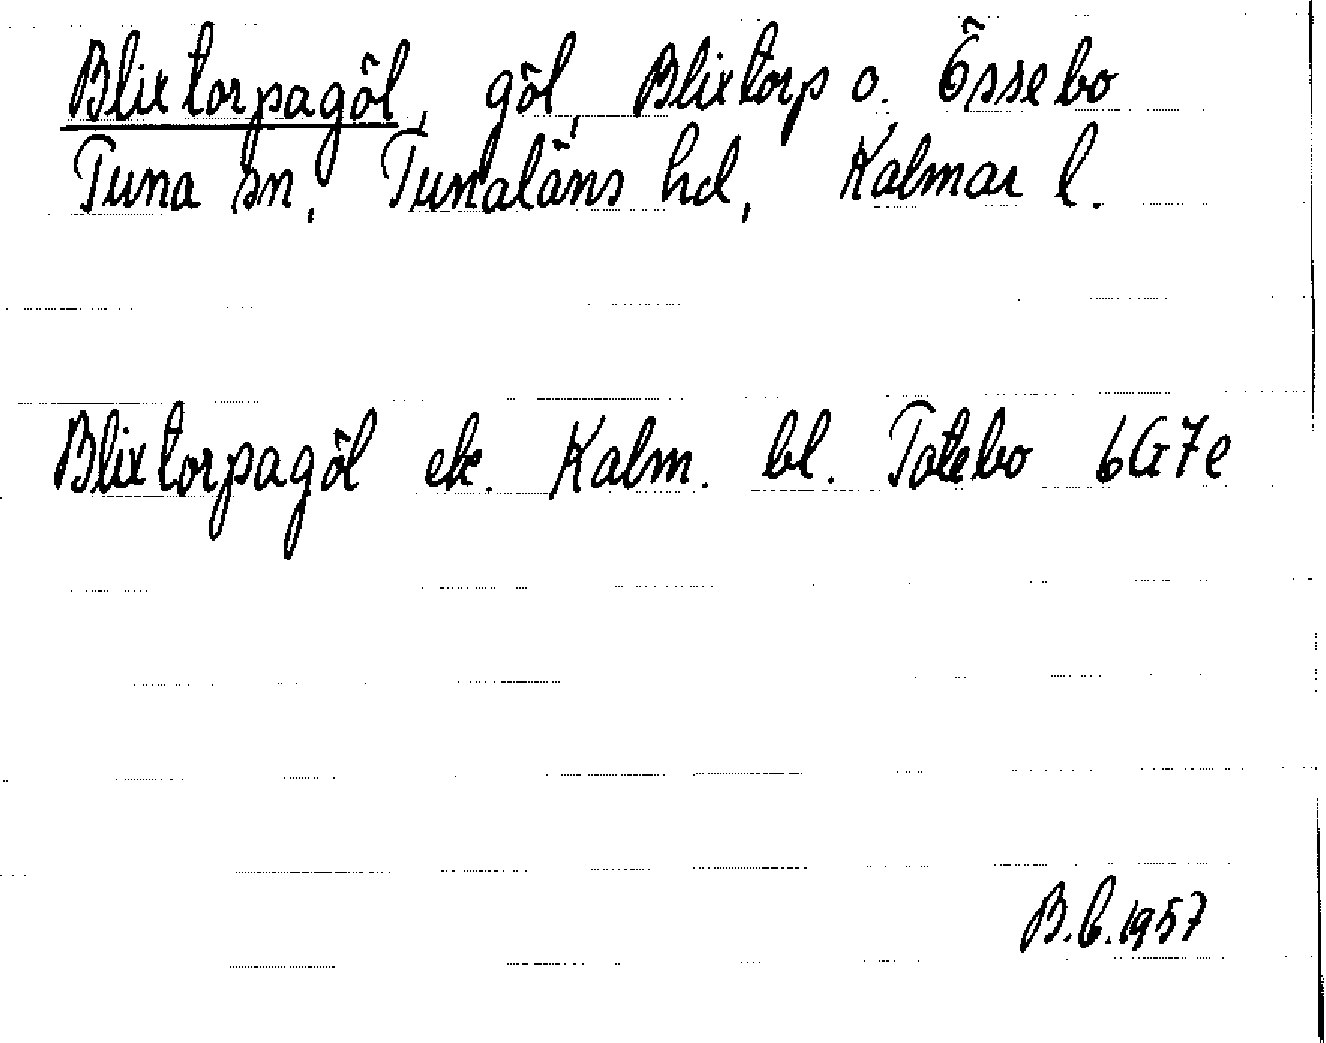 Blixtorpagöl, göl, Blixtorp o. Össebo
Tuna sn, Tunaläns hd, Kalmar l.
Blixtorpagöl ek. Kalm. bl. Totebo 6G7e
B.C. 1957